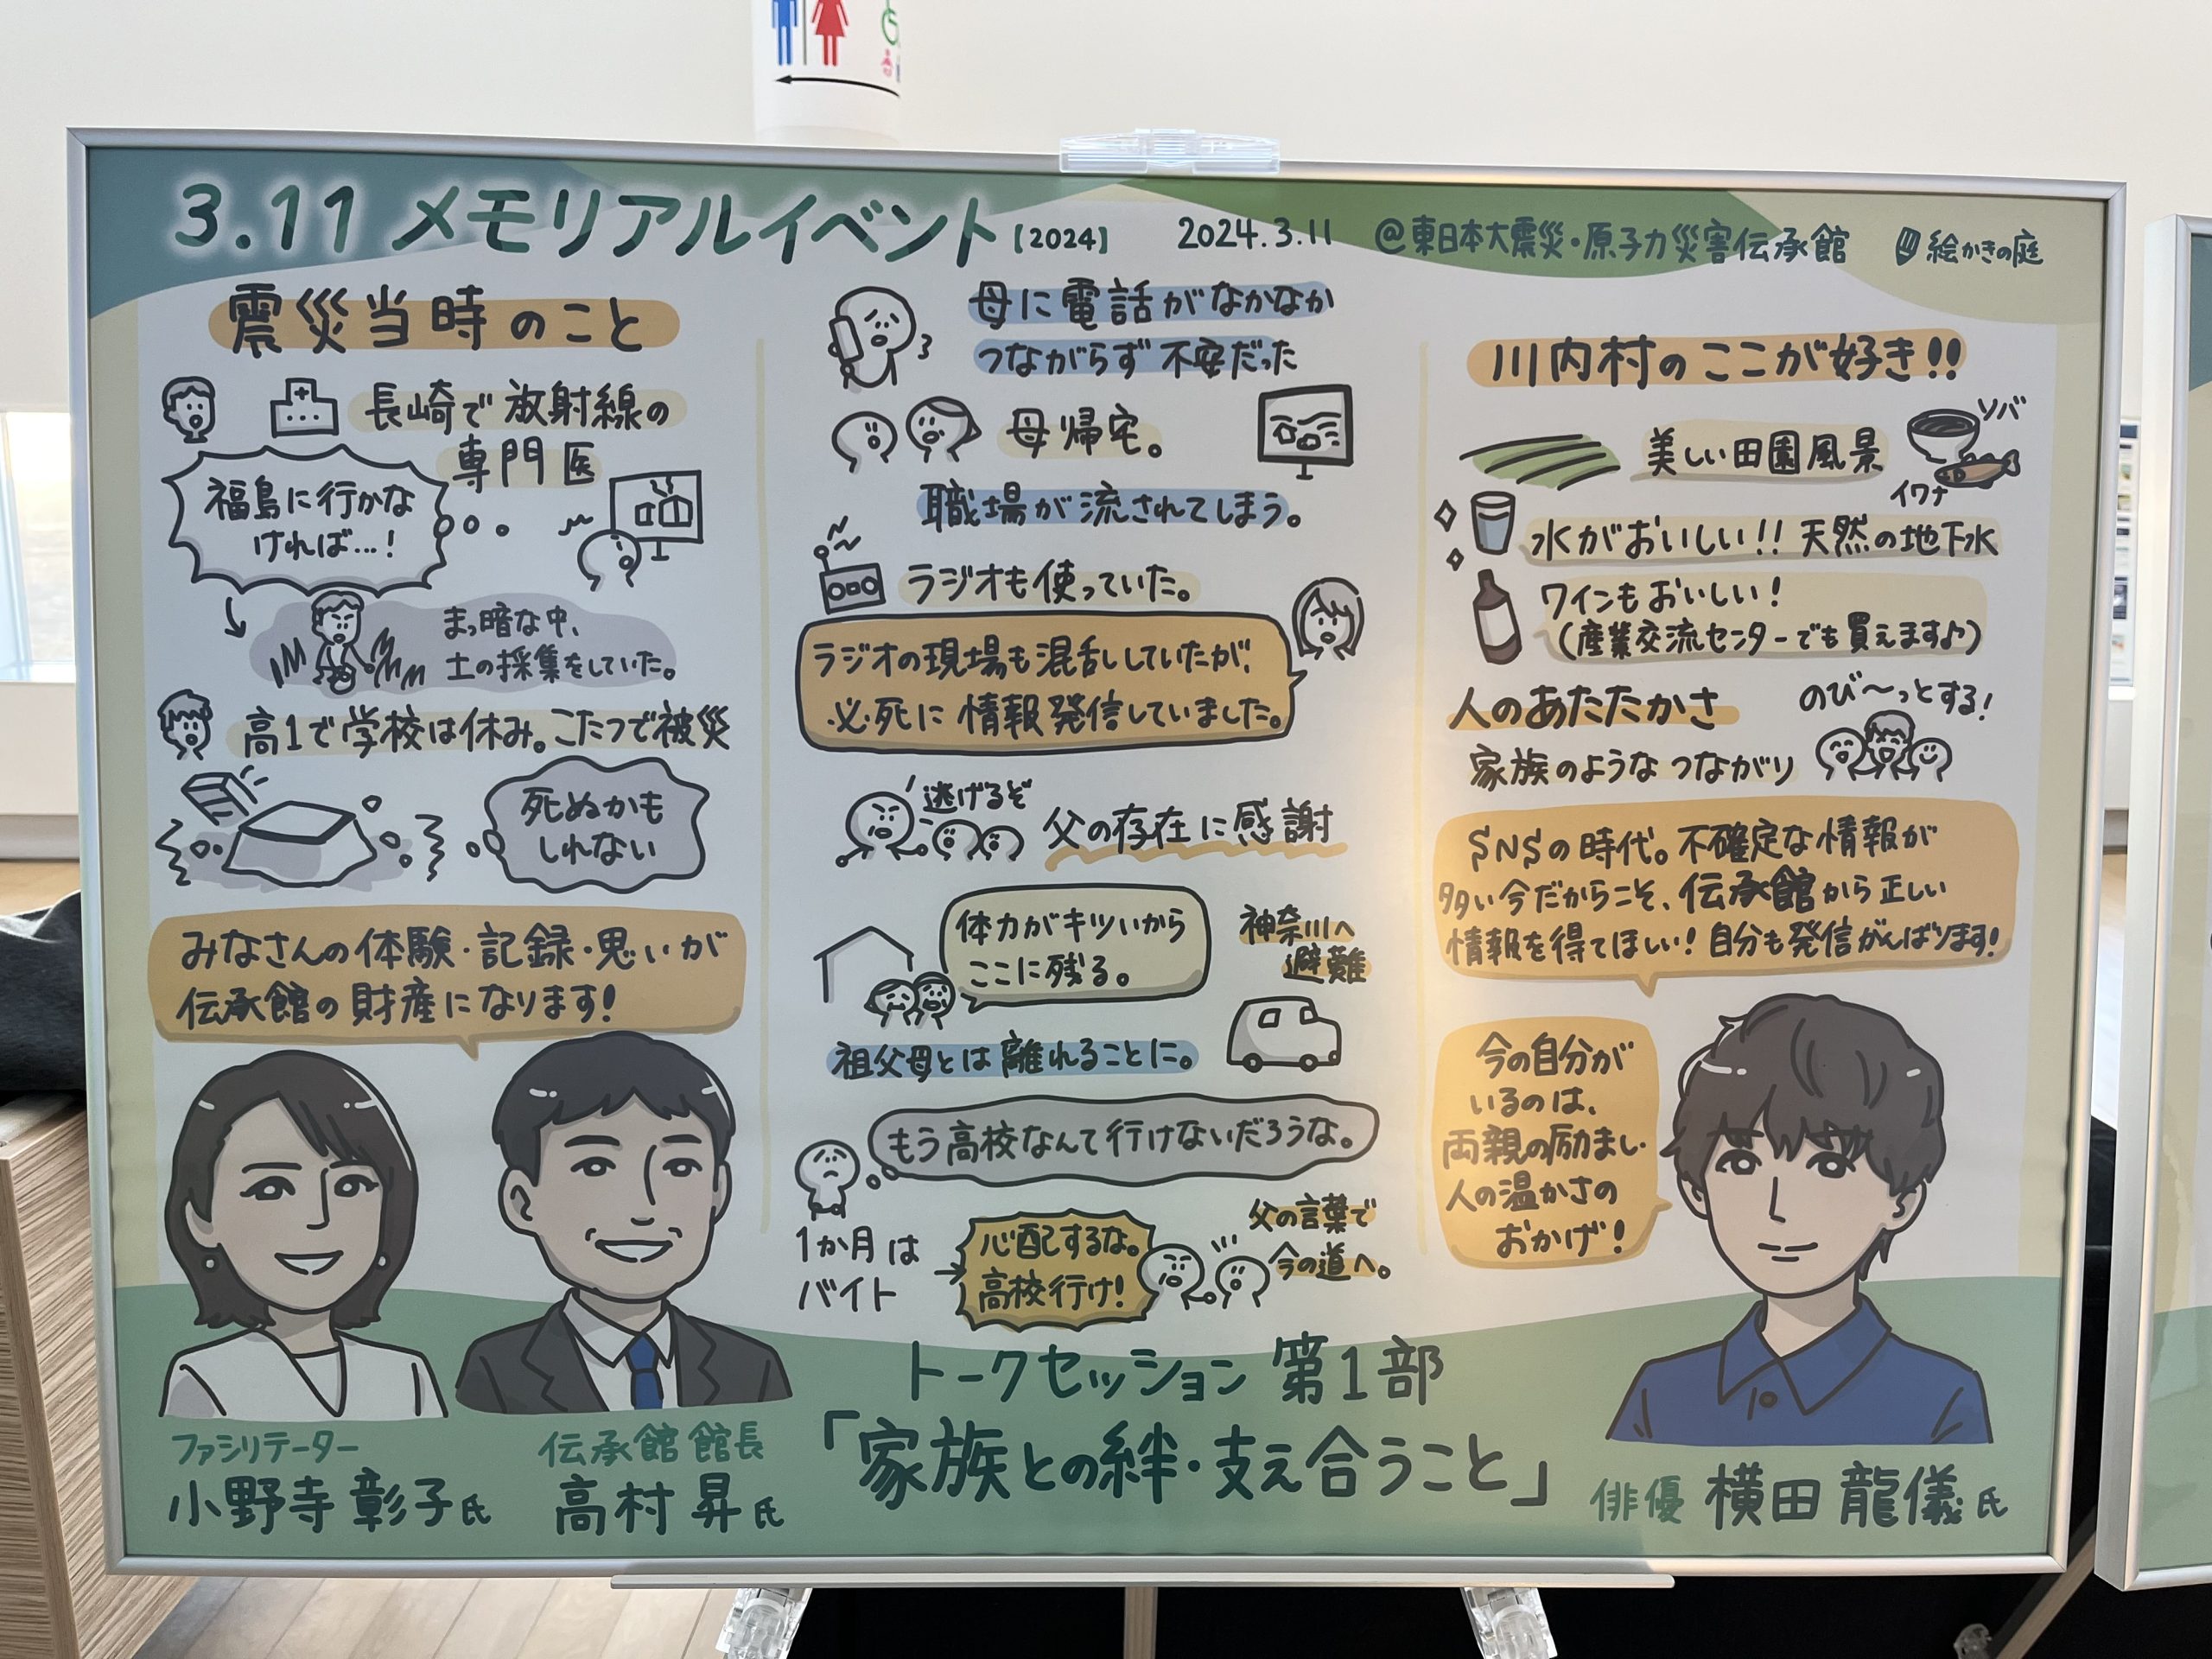 3.11 メモリアルイベント【2024】
2024.3.11 @東日本大震災・原子力災害伝承館
絵かきの庭
震災当時のこと
長崎で放射線の
専門医
福島に行かな
ければ…!
まっ暗な中、
土の採集をしていた。
高1で学校は休み。こたつで被災
死ぬかも
しれない
みなさんの体験・記録・思いが
伝承館の財産になります!
ファシリテーター
小野寺 彰子氏
伝承館 館長
高村 昇氏
母に電話がなかなか
つながらず 不安だった
母帰宅。
職場が流されてしまう。
ラジオも使っていた。
ラジオの現場も混乱していたが、
必死に情報発信していました。
逃げるぞ
父の存在に感謝
体力がキツいから
ここに残る。
神奈川へ
避難
祖父母とは離れることに。
もう高校なんて行けないだろうな。
1か月は
バイト
心配するな。
高校行け!
父の言葉で
今の道へ。
トークセッション 第1部
「家族との絆・支え合うこと」
川内村のここが好き!!
美しい田園風景
ソバ
イワナ
水がおいしい!! 天然の地下水
ワインもおいしい!
(産業交流センターでも買えます♪)
人のあたたかさ
のび〜っとする!
家族のようなつながり
SNSの時代。不確定な情報が
多い今だからこそ、伝承館から正しい
情報を得てほしい! 自分も発信がんばります!
今の自分が
いるのは、
両親の励まし・
人の温かさの
おかげ!
俳優 横田 龍儀氏